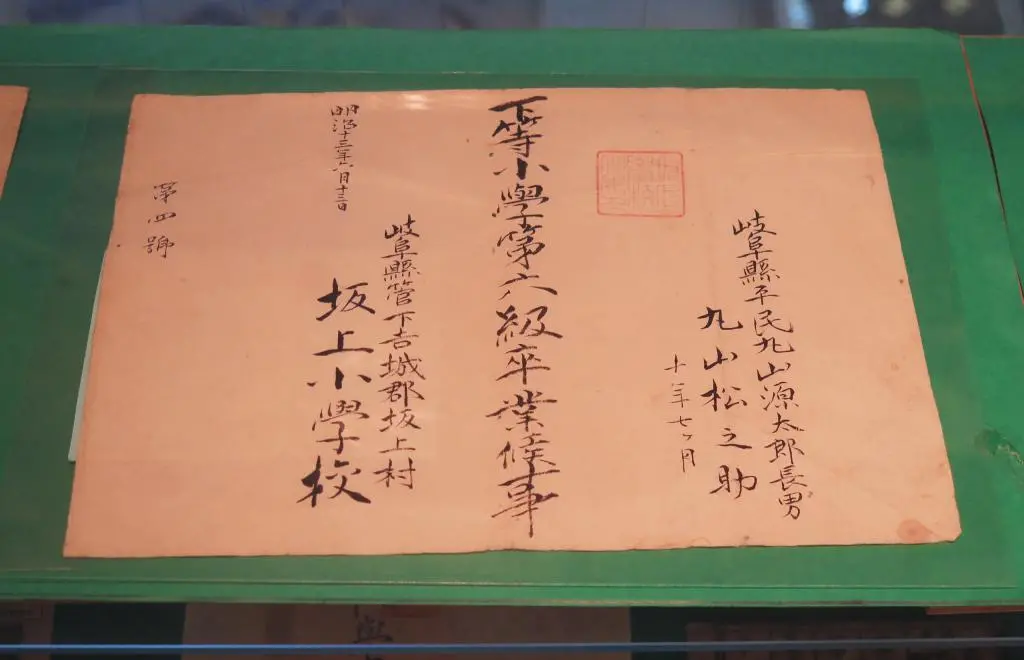 岐阜縣平民丸山源太郎長男
丸山松之助
十年七ヶ月
下等小學第六級卒業候事
岐阜縣管下吉城郡坂上村
坂上小學校
明治十三年六月十三日
第四號